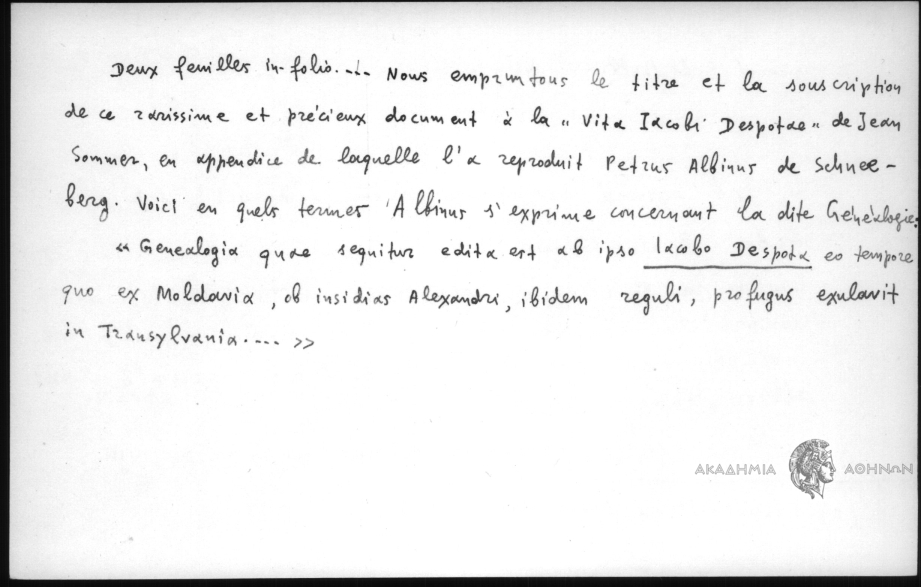 Deux feuilles in-folio.... Nous empruntons le titre et la souscription
de ce rarissime et précieux document à la « Vita Iacobi Despotae » de Jean
Sommer, en appendice de laquelle l'a reproduit Petrus Albinus de Schnee-
berg. Voici en quels termes Albinus s'exprime concernant la dite Généalogie:
« Genealogia quae sequitur edita est ab ipso Iacobo Despota eo tempore
quo ex Moldavia, ob insidias Alexandri, ibidem reguli, profugus exulavit
in Transylvania.... »
ΑΚΑΔΗΜΙΑ ΑΘΗΝΩΝ